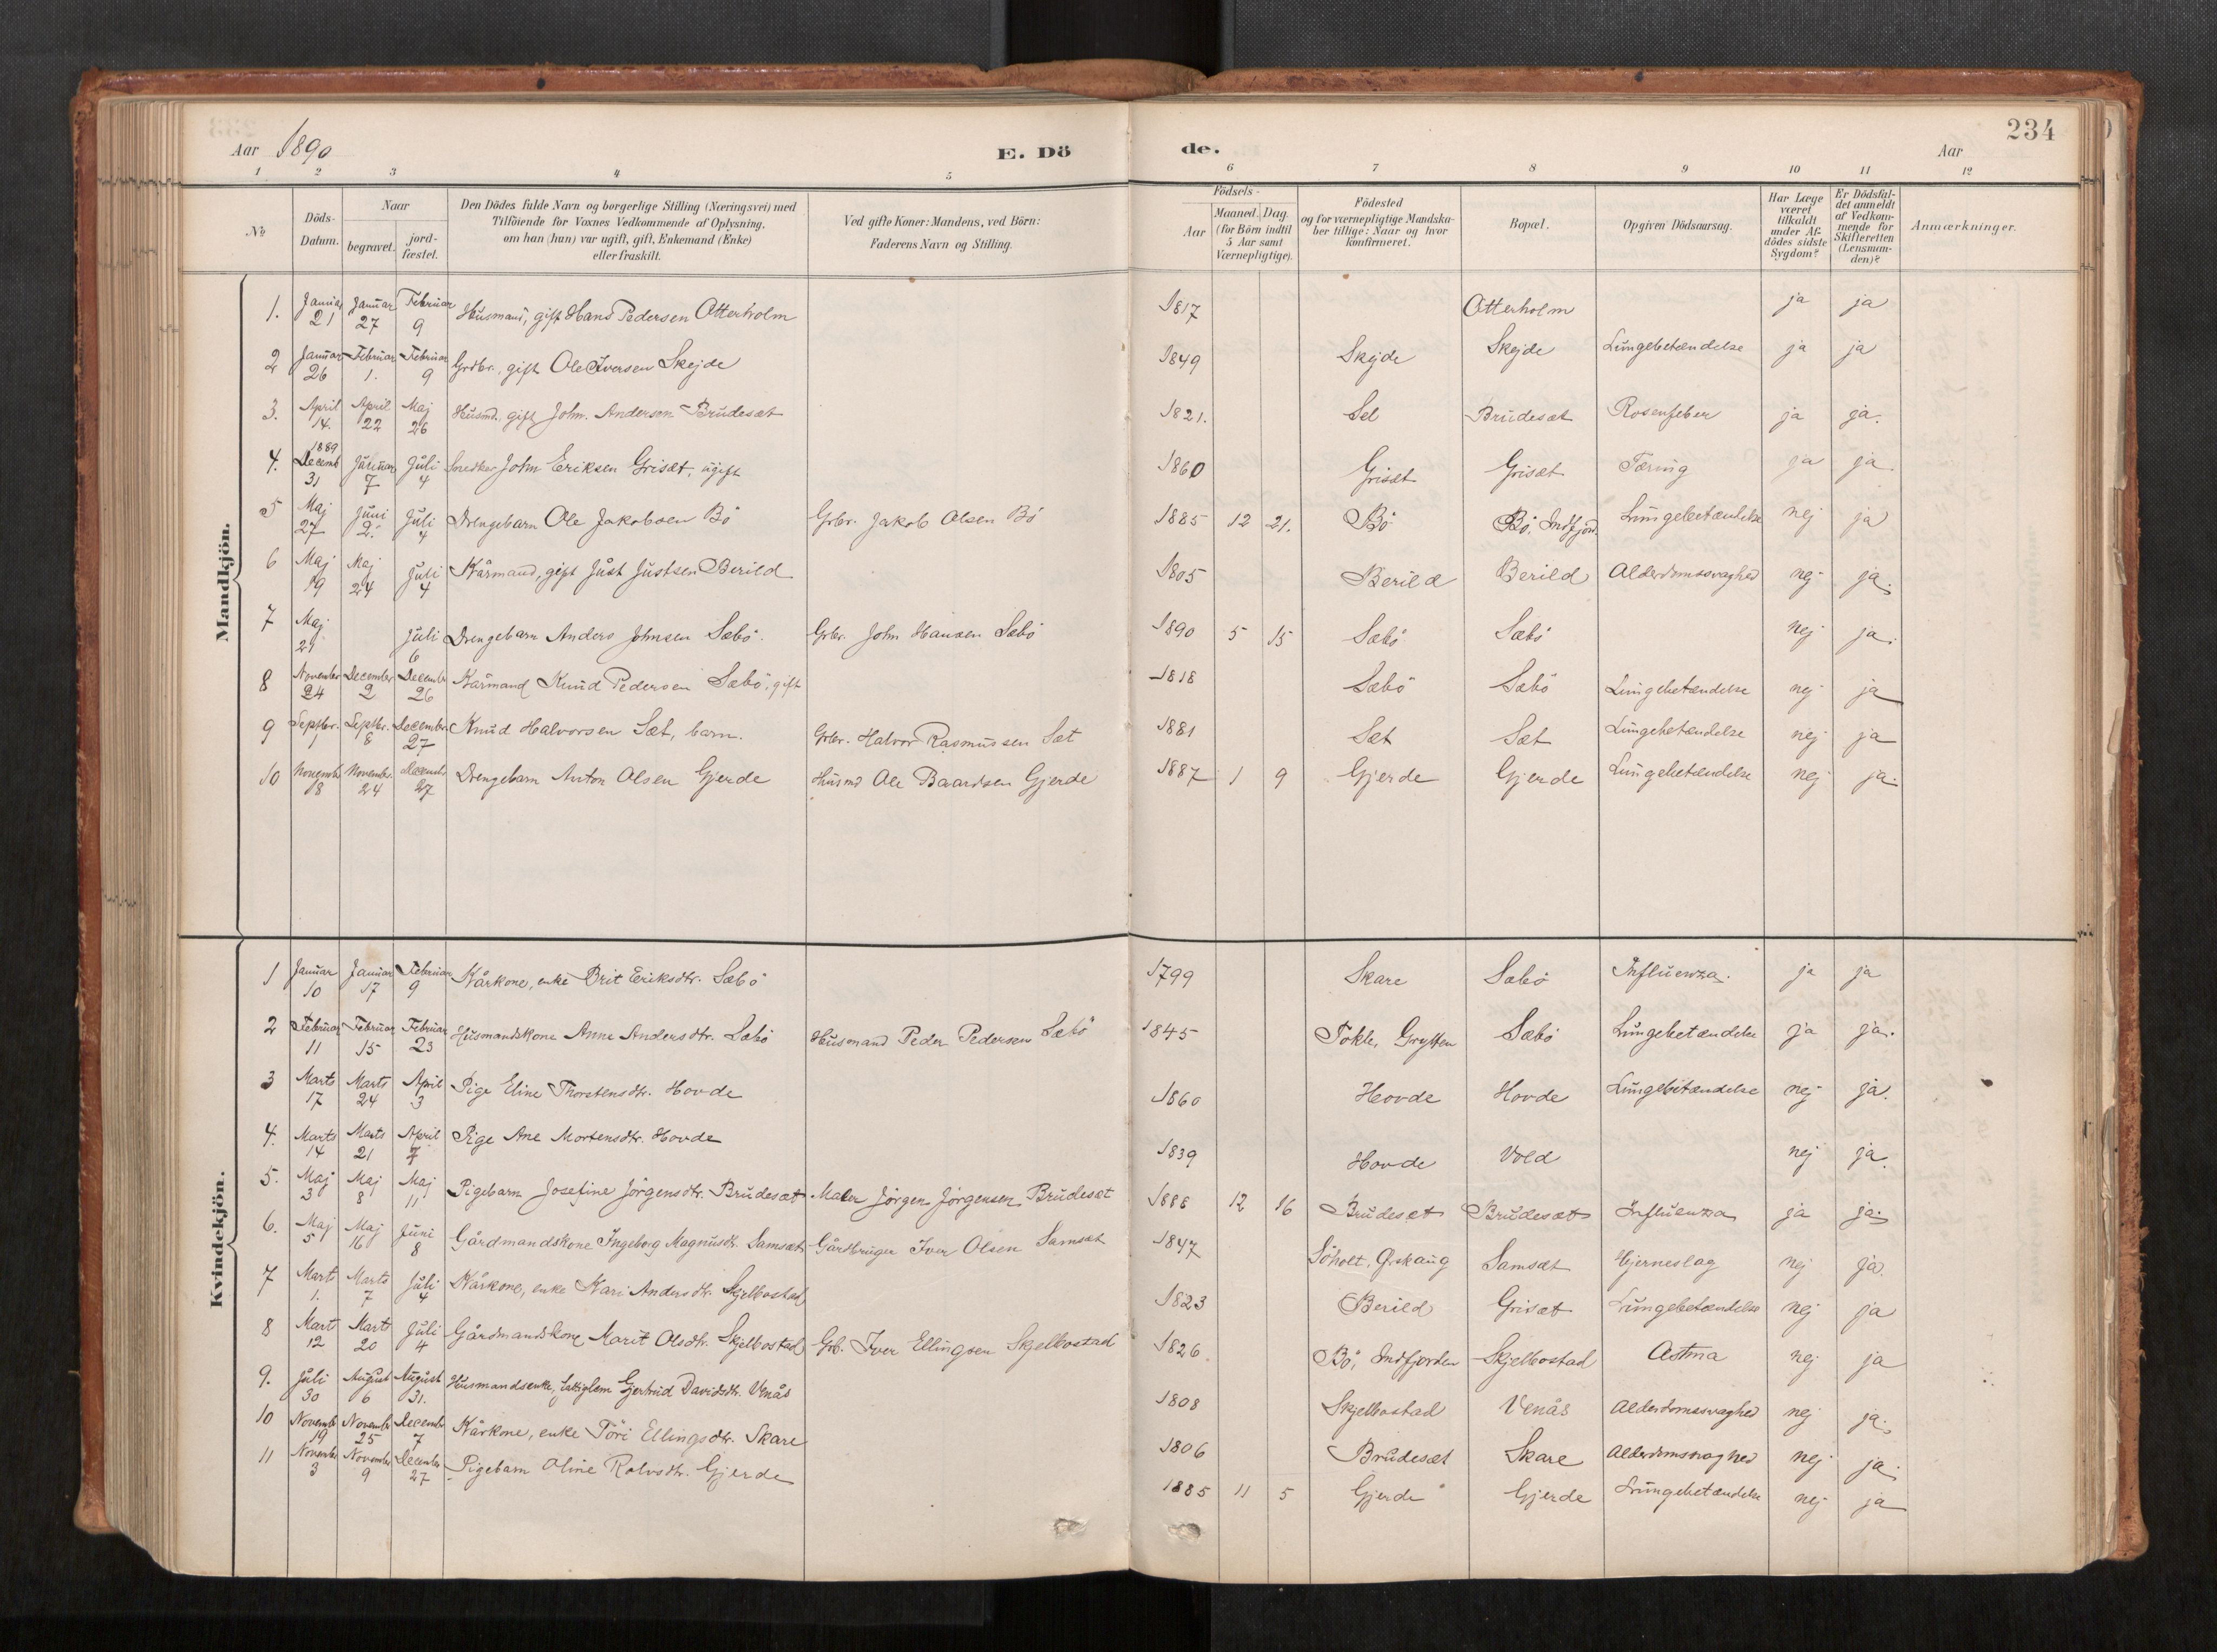 234
Aar 1890 E. Dö de. Aar
1 2 3 4 5 6 7 8 9 10 11 12
No
Döds-Datum.
Naar
begravet.
jord-fæstet.
Den Dödes fulde Navn og borgerlige Stilling (Næringsvei) med
Tilföiende for Voxnes Vedkommende af Oplysning,
om han (hun) var ugift, gift, Enkemand (Enke)
eller fraskilt.
Ved gifte Koner: Mandens, ved Börn:
Faderens Navn og Stilling.
Födsels-
Aar
Maaned. Dag.
(for Börn indtil
5 Aar samt
Værnepligtige).
Födested
og for værnepligtige Mandska-
ber tillige: Naar og hvor
konfirmeret.
Bopæl.
Opgiven Dödsaarsag.
Har Læge
været
tilkaldt
under Af-
dödes sidste
Sygdom?
Er Dödsfal-
det anmeldt
af Vedkom-
mende for
Skifteretten
(Lensman-
den)?
Anmærkninger.
Mandkjön.
1. Januar 21 Januar 27 Februar 9 Husmand, gift Hans Pedersen Otterholm 1817 Otterholm ja ja
2 Januar 26 Februar 1. Februar 9 Grdbr., gift Ole Iversen Skejde 1849 Skejde Skejde Lungebetændelse ja ja
3. April 14. April 22 Maj 26 Husmd. gift John Anderson Brudesæt 1821. Sel Brudesæt Rosenfeber ja ja.
4. 1889 Decemb 31 Januar 7 Juli 4 Snedker John Eriksen Grisæt, ugift 1860 Grisæt Grisæt Tæring ja ja.
5 Maj 27 Juni 2. Juli 4 Drengebarn Ole Jakobsen Bö Grbr. Jakob Olsen Bö 1885 12 21. Bö Bö, Indfjord. Lungebetændelse nej ja
6 Maj 19 Maj 24 Juli 4 Kårmand, gift Just Justsen Berild 1805 Berild Berild Alderdomssvaghed nej ja.
7 Maj 21 Juli 6 Drengebarn Anders Johnsen Sæbö. Grbr. John Hansen Sæbö 1890 5 15 Sæbö Sæbö nej ja.
8 November 24 December 2 Decembr 26 Kårmand Knud Pedersen Sæbö, gift 1818 Sæbö Sæbö Lungebetændelse nej ja
9 Septbr. 1 Septbr. 8 December 27 Knud Halvorsen Sæt, barn. Grbr. Halvor Rasmussen Sæt 1881 Sæt Sæt Lungebetændelse nej ja
10 Novembr 18 Novembr. 24 Decembr 27 Drengebarn Anton Olsen Gjerde Husmd Ole Baardsen Gjerde 1887 1 9 Gjerde Gjerde Lungebetændelse nej ja.
Kvindekjön.
1 Januar 10 Januar 17 Februar 9 Kårkone, enke Brit Eriksdtr. Sæbö 1799 Skare Sæbö Influenza. ja ja
2 Februar 11 Februar 15 Februar 23 Husmandskone Anne Andersdtr. Sæbö Husmand Peder Pedersen Sæbö 1845 Tokle, Grytten Sæbö Lungebetændelse ja ja.
3 Marts 17 Marts 24 April 3 Pige Eline Thorstensdtr. Hovde 1860 Hovde Hovde Lungebetændelse nej ja.
4. Marts 14 Marts 21 April 7 Pige Ane Mortensdtr. Hovde 1839 Hovde Vold nej ja.
5. Maj 3 Maj 8 Maj 11 Pigebarn Josefine Jörgensdtr. Brudesæt Maler Jörgen Jörgensen Brudesæt 1888 12 16 Brudesæt Brudesæt Influenza ja ja.
6. Maj 5 Maj 16 Juni 8 Gårdmandskone Ingeborg Magnusdtr. Samsæt Gårdbruger Iver Olsen Samsæt 1847 Söholt, Ørskaug Samsæt Hjerneslag nej ja.
7 Mart 1. Marts 7 Juli 4 Kårkone, enke Kari Andersdtr. Skjelbostad 1823 Berild Grisæt Lungebetændelse nej ja
8 Mart 12 Marts 20 Juli 4 Gårdmandskone Marit Olsdtr. Skjelbostad Grb. Iver Ellingsen Skjelbostad 1826 Bö, Indfjorden Skjelbostad Astma nej ja
9. Juli 30 August 6 August 31. Husmandsenke, Gjertrud Davidsdtr. Venås 1808 Skjelbostad Venås Alderdomssvaghed nej ja.
10 Novembr 19 Novembr 25 Decembr 7 Kårkone, enke Töri Ellingsdtr. Skare 1806 Brudesæt Skare Alderdomssvaghed nej ja.
11 Novembr 3 November 9 December 27 Pigebarn Oline Rolvsdtr. Gjerde 1885 11 5 Gjerde Gjerde Lungebetændelse nej ja